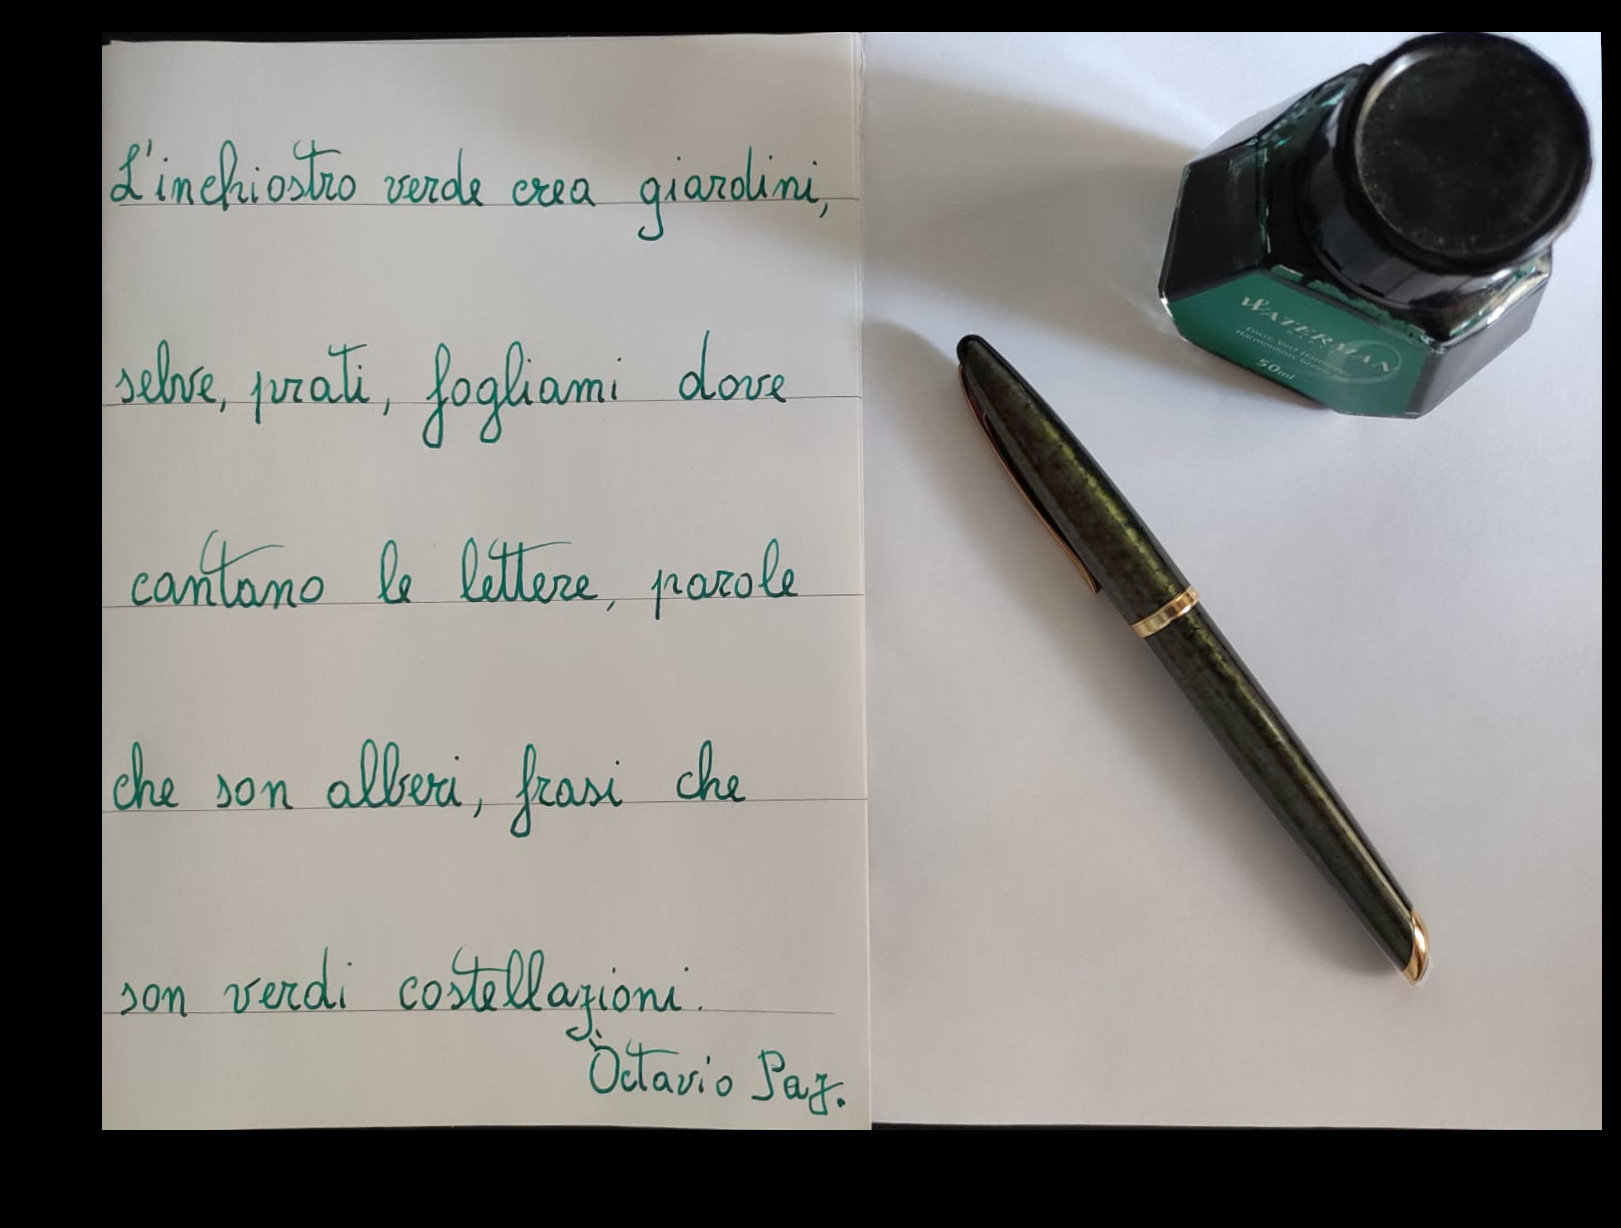 L'inchiostro verde crea giardini,
selve, prati, fogliami dove
cantano le lettere, parole
che son alberi, frasi che
son verdi costellazioni.
Octavio Paz.
WATERMAN
Encre Vert Harmonie
Harmonious Green Ink
50ml